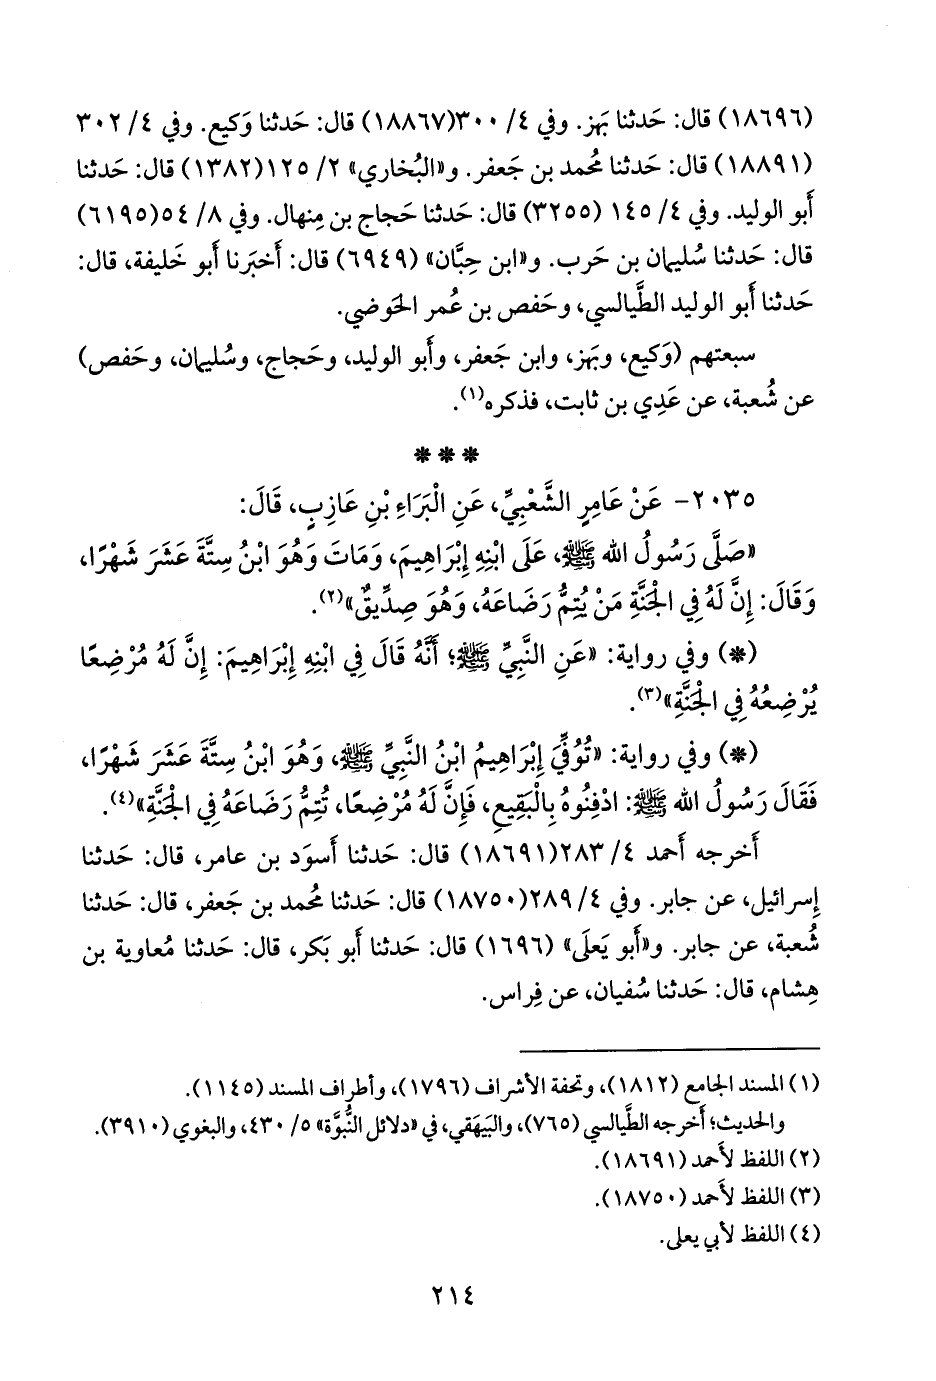 (١٨٦٩٦) قال: حَدثنا بَهز. وفي ٤/ ٣٠٠(١٨٨٦٧) قال: حَدثنا وَكيع. وفي ٤/ ٣٠٢
(١٨٨٩١) قال: حَدثنا مُحمد بن جَعفر. و«البُخاري» ٢/ ١٢٥(١٣٨٢) قال: حَدثنا
أَبو الوليد. وفي ٤/ ١٤٥ (٣٢٥٥) قال: حَدثنا حَجاج بن مِنهال. وفي ٨/ ٥٤(٦١٩٥)
قال: حَدثنا سُليمان بن حَرب. و«ابن حِبَّان» (٦٩٤٩) قال: أَخبَرنا أَبو خَليفة، قال:
حَدثنا أَبو الوليد الطَّيالسي، وحَفص بن عُمر الحَوضي.
سبعتهم (وَكيع، وبَهز، وابن جَعفر، وأَبو الوليد، وحَجاج، وسُليمان، وحَفص)
عن شُعبة، عن عَدِي بن ثابت، فذكره(١).
* * *
٢٠٣٥- عَنْ عَامِرٍ الشَّعْبِيِّ، عَنِ الْبَرَاءِ بْنِ عَازِبٍ، قَالَ:
«صَلَّى رَسُولُ الله ﷺ، عَلَى ابْنِهِ إِبْرَاهِيمَ، وَمَاتَ وَهُوَ ابْنُ سِتَّةَ عَشَرَ شَهْرًا،
وَقَالَ: إِنَّ لَهُ فِي الْجَنَّةِ مَنْ يُتِمُّ رَضَاعَهُ، وَهُوَ صِدِّيقٌ»(٢).
(*) وفي رواية: «عَنِ النَّبِيِّ ﷺ؛ أَنَّهُ قَالَ فِي ابْنِهِ إِبْرَاهِيمَ: إِنَّ لَهُ مُرْضِعًا
يُرْضِعُهُ فِي الْجَنَّةِ»(٣).
(*) وفي رواية: «تُوُفِّيَ إِبْرَاهِيمُ ابْنُ النَّبِيِّ ﷺ، وَهُوَ ابْنُ سِتَّةَ عَشَرَ شَهْرًا،
فَقَالَ رَسُولُ الله ﷺ: ادْفِنُوهُ بِالْبَقِيعِ، فَإِنَّ لَهُ مُرْضِعًا، تُتِمُّ رَضَاعَهُ فِي الْجَنَّةِ»(٤).
أَخرجه أَحمد ٤/ ٢٨٣(١٨٦٩١) قال: حَدثنا أَسوَد بن عامر، قال: حَدثنا
إِسرائيل، عن جابر. وفي ٤/ ٢٨٩(١٨٧٥٠) قال: حَدثنا مُحمد بن جَعفر، قال: حَدثنا
شُعبة، عن جابر. و«أَبو يَعلَى» (١٦٩٦) قال: حَدثنا أَبو بَكر، قال: حَدثنا مُعاوية بن
هِشام، قال: حَدثنا سُفيان، عن فِراس.
(١) المسند الجامع (١٨١٢)، وتحفة الأشراف (١٧٩٦)، وأطراف المسند (١١٤٥).
والحديث؛ أَخرجه الطَّيالسي (٧٦٥)، والبَيهَقي، في «دلائل النُّبوَّة» ٥/ ٤٣٠، والبغوي (٣٩١٠).
(٢) اللفظ لأَحمد (١٨٦٩١).
(٣) اللفظ لأَحمد (١٨٧٥٠).
(٤) اللفظ لأَبي يعلى.
٢١٤